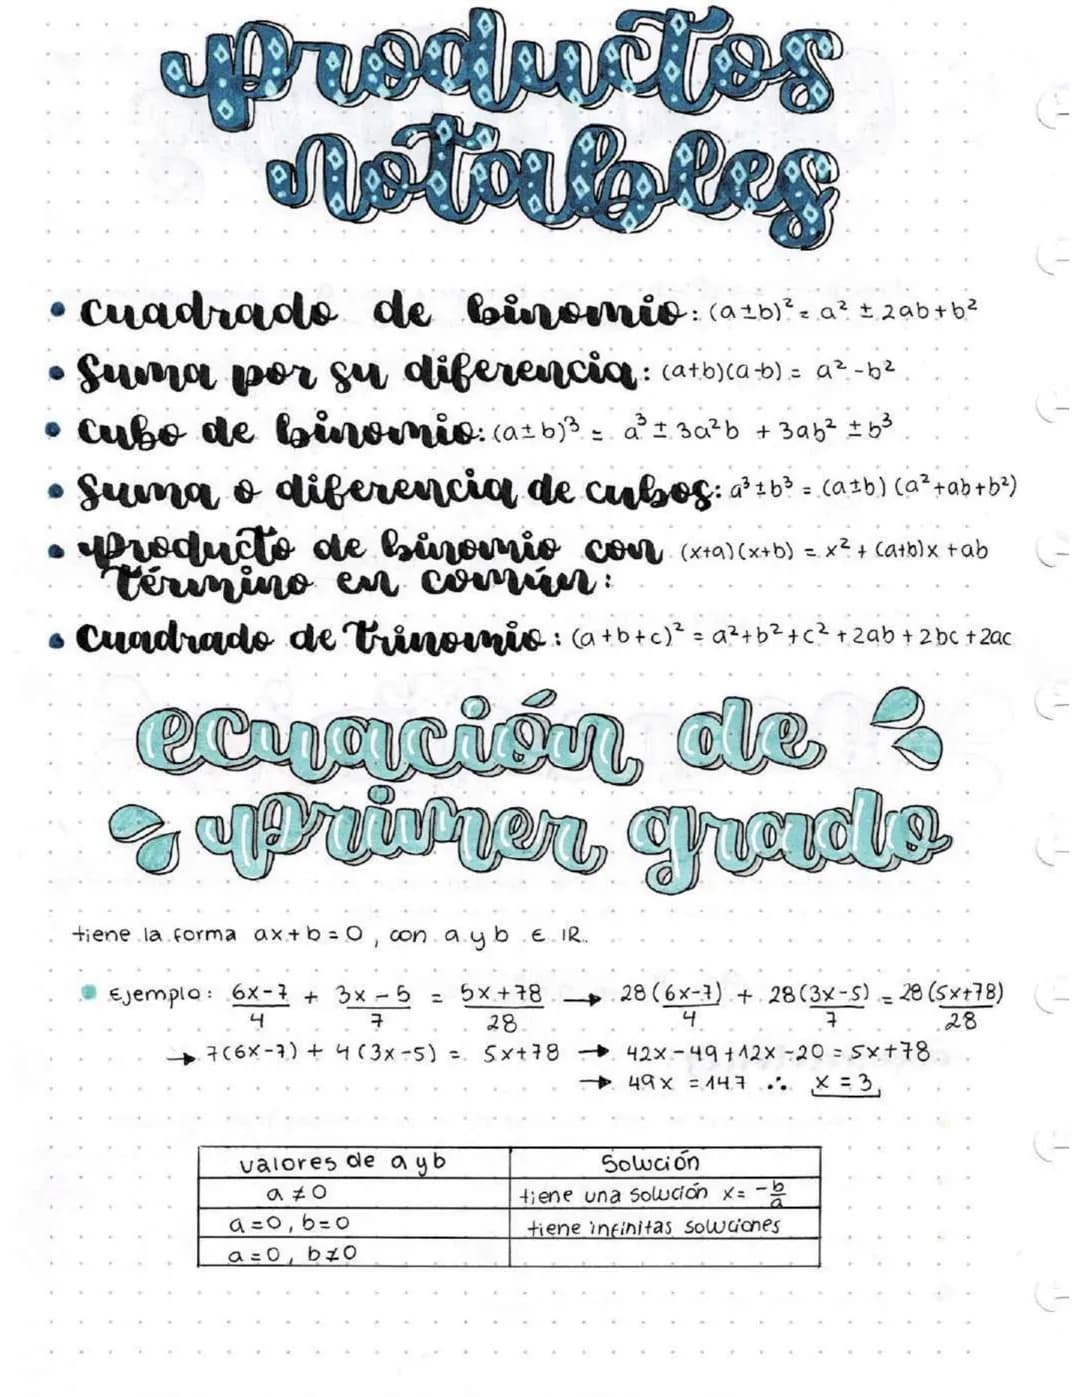 productos
notables
• cuadrado de binomio: (a±b)² = a² ± 2ab+b²
• suma por su diferencia: (a+b)(a-b) = a²-b²
• cubo de binomio: (a±b)³ = a³ ± 3a²b + 3ab² ± b³
• suma o diferencia de cubos: a³±b³ = (a±b) (a²+ab+b²)
• producto de binomio con (x+a)(x+b) = x² + (a+b)x + ab
término en común:
• cuadrado de trinomio: (a+b+c)² = a²+b²+c² +2ab + 2bc +2ac
ecuación de
primer grado
tiene la forma ax+b=0, con a y b ∈ IR.
• Ejemplo: (6x-7)/4 + (3x-5)/7 = (5x+78)/28 → 28(6x-7)/4 + 28(3x-5)/7 = 28(5x+78)/28
→ 7(6x-7) + 4(3x-5) = 5x+78 → 42x-49+12x-20 = 5x+78
→ 49x = 147 ∴ x = 3
valores de a y b Solución
a ≠ 0 tiene una solución x= -b/a
a=0, b=0 tiene infinitas soluciones
a=0, b≠0